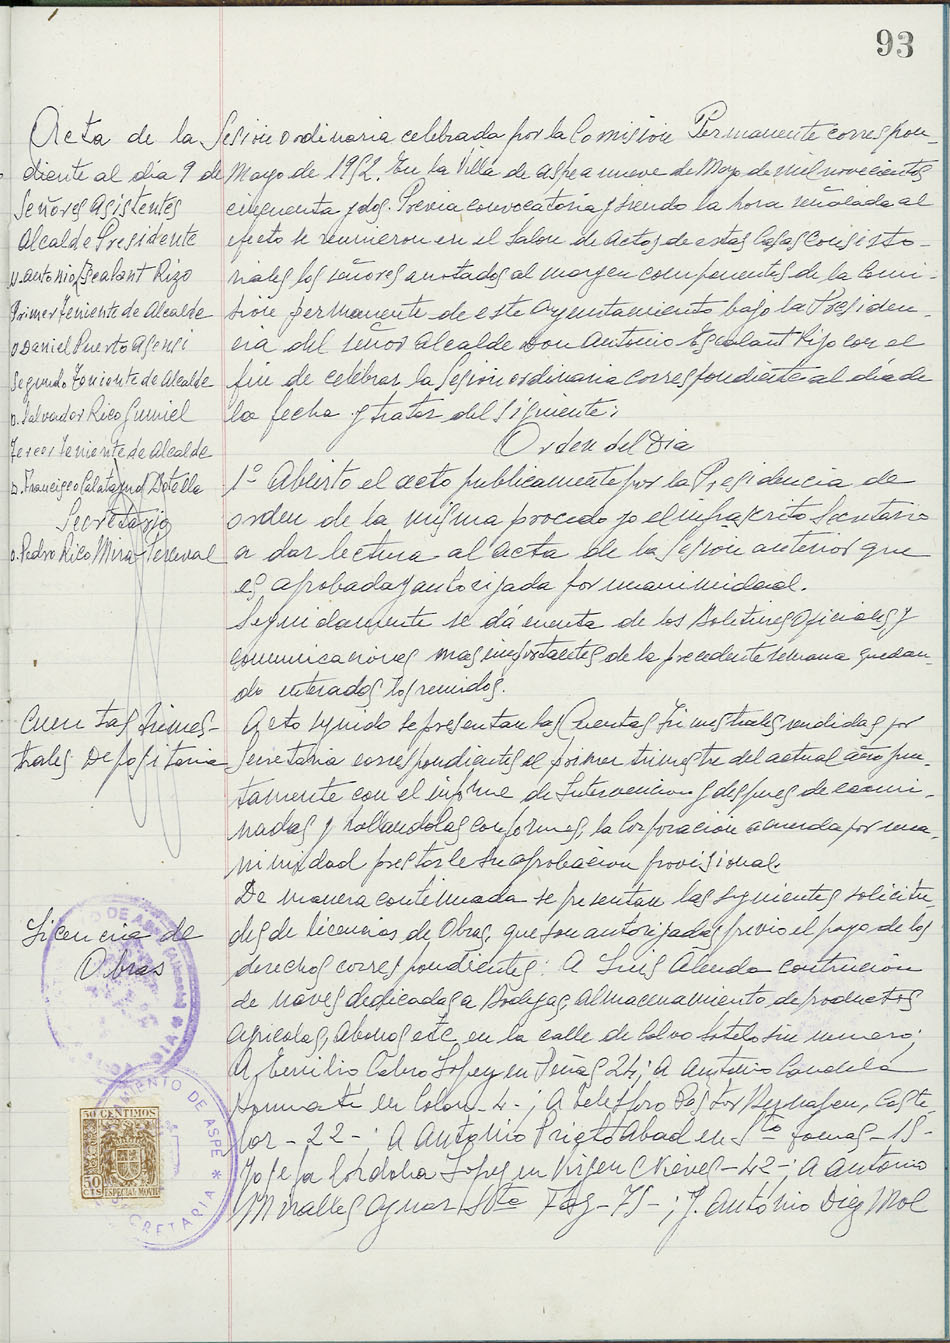 93
Acta de la Sesion ordinaria celebrada por la Comision Permanente correspon-
diente al día 9 de Mayo de 1952. En la Villa de Aspe a nueve de Mayo de mil novecientos
Señores Asistentes
Alcalde Presidente
D. Antonio Escalant Rizo
Primer Teniente de Alcalde
D Daniel Puerto Asensi
Segundo Teniente de Alcalde
D. Salvador Rico Gumiel
Tercer Teniente de Alcalde
D. Francisco Calatayud Botella
Secretario
D. Pedro Rico Mira-Perceval
cincuenta y dos. Previa convocatoria y siendo la hora señalada al
efecto se reunieron en el Salon de Actos de estas Casas Consisto-
riales los señores anotados al margen componentes de la Comi-
sión permanente de este Ayuntamiento bajo la Presiden-
cia del señor Alcalde Don Antonio Escalant Rizo con el
fin de celebrar la Sesion ordinaria correspondiente al día de
la fecha y tratar del siguiente:
Orden del Dia
1º Abierto el acto publicamente por la Presidencia de
orden de la misma procedo yo el infrascrito Secretario
a dar lectura al acta de la Sesion anterior que
es aprobada y autorizada por unanimidad.
Seguidamente se dá cuenta de los Boletines Oficiales y
comunicaciones mas importantes de la precedente semana quedan-
do enterados los reunidos.
Cuentas Trimes-
trales Depositaria
Acto seguido se presentan las Cuentas Trimestrales rendidas por
Secretaria correspondientes al primer trimestre del actual año jun-
tamente con el informe de Intervencion y despues de exami-
nadas y hallandolas conformes, la Corporación acuerda por una-
nimidad prestarle su aprobacion provisional.
Licencia de
Obras
De manera continuada se presentan las siguientes solicitu-
des de licencias de Obras, que son autorizadas previo el pago de los
derechos correspondientes: A Luis Alenda contrución
de naves dedicadas a Bodegas, almacenamiento de productos
agricolas, abonos etc en la calle de Calvo Sotelo sin numero;
A Emilio Calero Lopez en Peñas 24; A Antonio Candela
en Colon - 4 - ; A Telésforo Pastor Caste-
lar - 22 - ; A Antonio Prieto Abad en Stº Tomas - 15 -
Josefa Córdoba Lopez en Virgen Nieves - 42 - ; A Antonio
Miralles Aznar Sta Faz - 75 - ; J. António Diez Mol
AYUNTAMIENTO DE ASPE * SECRETARIA *
50 CENTIMOS
50 CTS
ESPECIAL MOVIL